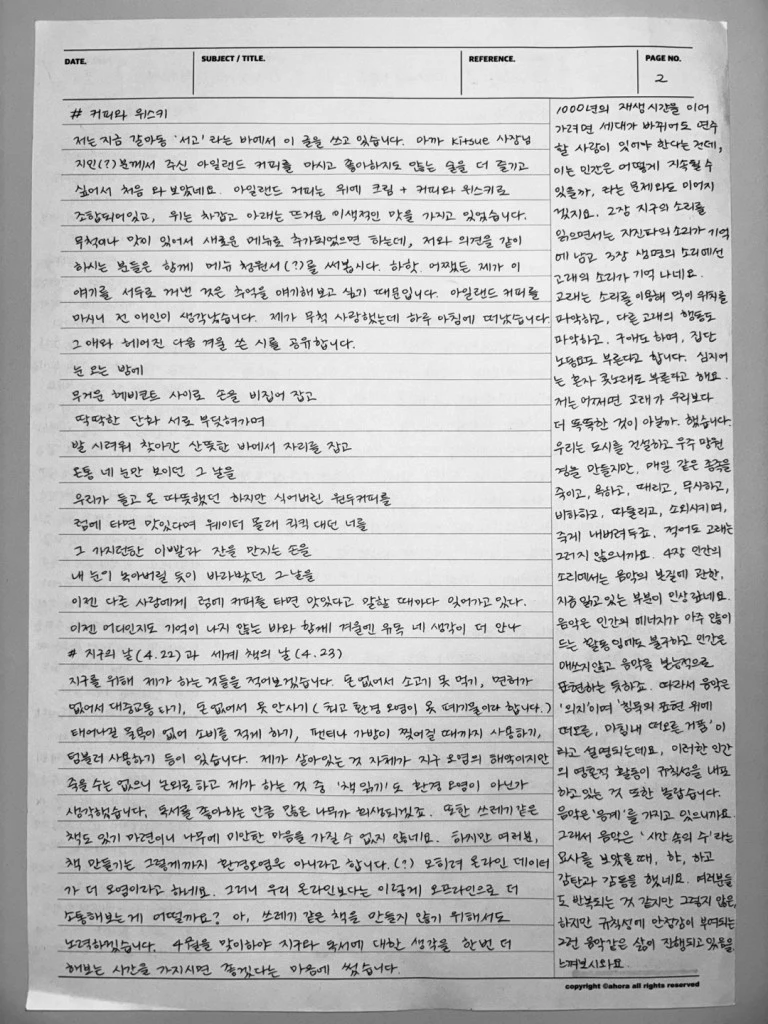 DATE.
SUBJECT / TITLE.
REFERENCE.
PAGE NO.
2
# 커피와 위스키
저는 지금 갈마동 '서고' 라는 바에서 이 글을 쓰고 있습니다. 아까 Kitsue 사장님
지인(?)분께서 주신 아일랜드 커피를 마시고 좋아하지도 않는 술을 더 즐기고
싶어서 처음 와 보았네요. 아일랜드 커피는 위에 크림 + 커피와 위스키로
조합되어있고, 위는 차갑고 아래는 뜨거운 이색적인 맛을 가지고 있었습니다.
무척이나 맛이 있어서 새로운 메뉴로 추가되었으면 하는데, 저와 의견을 같이
하시는 분들은 함께 메뉴 청원서(?)를 써봅시다. 하핫. 어쨌든 제가 이
얘기를 서두로 꺼낸 것은 추억을 얘기해보고 싶기 때문입니다. 아일랜드 커피를
마시니 전 애인이 생각났습니다. 제가 무척 사랑했는데 하루 아침에 떠났습니다.
그 애와 헤어진 다음 겨울 쓴 시를 공유합니다.
눈 오는 밤에
무거운 헤비코트 사이로 손을 비집어 잡고
딱딱한 단화 서로 부딪혀가며
발 시려워 찾아간 산뜻한 바에서 자리를 잡고
온통 네 눈만 보이던 그 날을
우리가 들고 온 따뜻했던 하지만 식어버린 원두커피를
럼에 타면 맛있다며 웨이터 몰래 킥킥 대던 너를
그 가지런한 이빨과 잔을 만지는 손을
내 눈이 녹아버릴 듯이 바라봤던 그날을
이젠 다른 사람에게 럼에 커피를 타면 맛있다고 말할 때마다 잊어가고 있다.
이젠 어디인지도 기억이 나지 않는 바와 함께 겨울엔 유독 네 생각이 더 안나
# 지구의 날(4.22)과 세계 책의 날(4.23)
지구를 위해 제가 하는 것들을 적어보겠습니다. 돈 없어서 소고기 못 먹기, 면허가
없어서 대중교통 타기, 돈 없어서 옷 안사기(최고 환경 오염이 옷 폐기물이라 합니다.)
태어나길 물욕이 없어 소비를 적게 하기, 팬티나 가방이 찢어질 때까지 사용하기,
텀블러 사용하기 등이 있습니다. 제가 살아있는 것 자체가 지구 오염의 해악이지만
죽을 수는 없으니 논외로하고 제가 하는 것 중 '책 읽기'도 환경 오염이 아닌가
생각했습니다. 독서를 좋아하는 만큼 많은 나무가 희생되겠죠. 또한 쓰레기같은
책도 있기 마련이니 나무에 미안한 마음을 가질 수 없지 않네요. 하지만 여러분,
책 만들기는 그렇게까지 환경오염은 아니라고 합니다.(?) 오히려 온라인 데이터
가 더 오염이라고 하네요. 그러니 우리 온라인보다는 이렇게 오프라인으로 더
소통해보는게 어떨까요? 아, 쓰레기 같은 책을 만들지 않기 위해서도
노력하겠습니다. 4월을 맞이하야 지구와 독서에 대한 생각을 한번 더
해보는 시간을 가지시면 좋겠다는 마음에 썼습니다.
1000년의 재생시간을 이어
가려면 세대가 바뀌어도 연주
할 사람이 있어야 한다는건데,
이는 인간은 어떻게 지속될 수
있을까, 라는 문제와도 이어지
겠지요. 2장 지구의 소리를
읽으면서는 지진파의 소리가 기억
에 남고 3장 생명의 소리에선
고래의 소리가 기억 나네요.
고래는 소리를 이용해 먹이 위치를
파악하고, 다른 고래의 행동도
파악하고. 구애도 하며, 집단
노동요도 부른다고 합니다. 심지어
는 혼자 콧노래도 부른다고 해요.
저는 어쩌면 고래가 우리보다
더 똑똑한 것이 아닐까. 했습니다.
우리는 도시를 건설하고 우주 망원
경을 만들지만, 매일 같은 종족을
죽이고, 욕하고, 때리고, 무시하고,
비하하고, 따돌리고, 소외시키며,
죽게 내버려두죠. 적어도 고래는
그러지 않으니까요. 4장 인간의
소리에서는 음악의 본질에 관한,
지금 읽고 있는 부분이 인상 깊네요.
음악은 인간의 에너지가 아주 많이
드는 활동임에도 불구하고 인간은
애쓰지않고 음악을 본능적으로
표현하는 듯하죠. 따라서 음악은
'의지'이며 '침묵의 표현 위에
떠오른, 마침내 떠오를 거품'이
라고 설명되는데요, 이러한 인간
의 영혼적 활동이 규칙성을 내포
하고 있는 것 또한 놀랍습니다.
음악은 '음계'를 가지고 있으니까요.
그래서 음악은 '시간 속의 수'라는
묘사를 보았을 때, 하, 하고
감탄과 감동을 했네요. 여러분들
도 반복되는 것 같지만 그렇지 않은,
하지만 규칙성에 안정감이 부여되는
그런 음악같은 삶이 진행되고 있음을
느껴보시와요.
copyright ©ahora all rights reserved